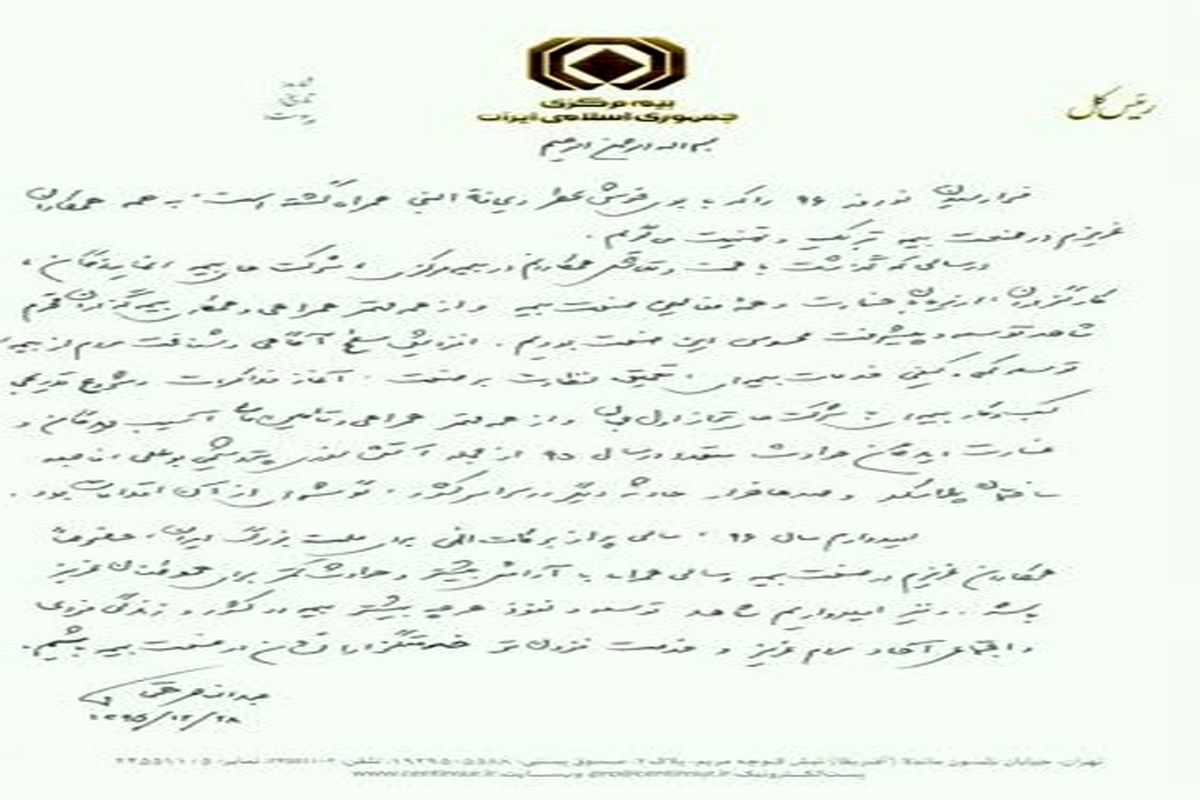 رئیس کل
شماره
تاریخ
پیوست
بیمه مرکزی
جمهوری اسلامی ایران
بسم الله الرحمن الرحیم
فرارسیدن نوروز ۹۶ را که با بوی خوش عطر ریحانة النبی همراه گشته است به همه همکاران
عزیزم در صنعت بیمه تبریک و تهنیت می گویم.
در سالی که گذشت با همت و تلاش همکارانم در بیمه مرکزی، شرکت های بیمه، نمایندگان،
کارگزاران، ارزیابان خسارت و همه فعالین صنعت بیمه و از همه مهمتر همراهی و همکاری بیمه گذاران محترم
شاهد توسعه و پیشرفت محسوس این صنعت بودیم. افزایش سطح آگاهی و شناخت مردم از بیمه،
توسعه کمی و کیفی خدمات بیمه ای، تعمیق نظارت بر صنعت، آغاز مذاکرات و شروع تدریجی
کسب و کار بیمه ای با شرکت های تراز اول جهان و از همه مهمتر همراهی و تامین مالی آسیب دیدگان و
خسارت دیدگان حوادث متعدد در سال ۹۵ از جمله آتش سوزی پتروشیمی بوعلی، فاجعه
ساختمان پلاسکو و صدها هزار حادثه دیگر در سراسر کشور، گوشه ای از آن اقدامات بود.
امیدوارم سال ۹۶، سالی پر از برکات الهی برای ملت بزرگ ایران، خصوصاً
همکاران عزیزم در صنعت بیمه و سالی همراه با آرامش بیشتر و حوادث کمتر برای هموطنان عزیز
باشد. و نیز امیدواریم شاهد توسعه و نفوذ هر چه بیشتر بیمه در کشور و زندگی فردی
و اجتماعی آحاد مردم عزیز و خدمت فزون تر خدمتگزارانشان در صنعت بیمه باشیم.
۱۳۹۵/۱۲/۲۸
www.centinsur.ir